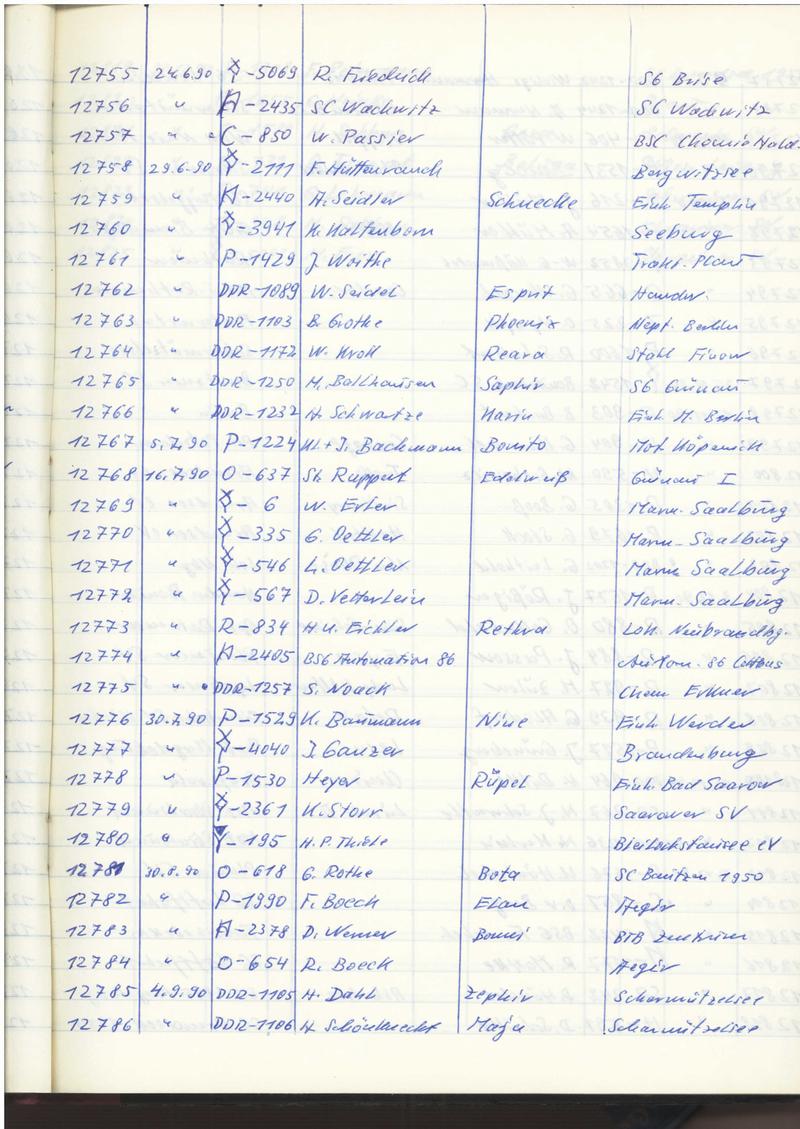 12755 24.6.90 Y-5069 R. Friedrich SG Brise
12756 " H-2435 SC Wachwitz SG Wachwitz
12757 " C-850 W. Passier BSC Chemie Nord.
12758 29.6.90 Y-2111 F. Hüttenrauch Bergwitzsee
12759 " H-2440 H. Seidler Schnecke Einh. Templin
12760 " Y-3941 H. Kaltenborn Seeburg
12761 " P-1429 J. Woithe Trakt. Plau
12762 " DDR-1089 W. Seidel Esprit Handw.
12763 " DDR-1103 B. Grothe Phoenix Nept. Berlin
12764 " DDR-1172 W. Kroll Stahl Finow
12765 " DDR-1250 M. Ballhausen Saphir SG Grünau
12766 " DDR-1232 H. Schwartze Einh. M. Berlin
12767 5.7.90 P-1224 J. Bachmann Bonito Mot. Köpenick
12768 16.7.90 O-637 Ruppert Edelweiß Grünau I
12769 " Y-6 W. Erler Mann. Saalburg
12770 " Y-335 G. Oettler Mann. Saalburg
12771 " Y-546 L. Oettler Mann. Saalburg
12772 " Y-567 D. Vetterlein Mann. Saalburg
12773 " R-834 H.U. Eichler Rethra Lok. Neubrandbg.
12774 " H-2405 BSG Automation 86 Autom. 86 Cottbus
12775 " DDR-1257 S. Noack Chem Erkner
12776 30.7.90 P-1529 K. Baumann Nine Einh. Werder
12777 " Y-4040 J. Ganzer Brandenburg
12778 " P-1530 Heyer Rüpel Einh. Bad Saarow
12779 " Y-2361 K. Storr Saarower SV
12780 " Y-195 H.P. Thiele Bleilochstausee eV
12781 30.8.90 O-618 G. Rothe Beta SC Bautzen 1950
12782 " P-1990 F. Boeck Elan Aegir
12783 " H-2378 D. Werner BTB Zeuthen
12784 " O-654 R. Boeck Aegir
12785 4.9.90 DDR-1105 H. Dahl Zephir Scharmützelsee
12786 " DDR-1106 H. Schönknecht Maja Scharmützelsee